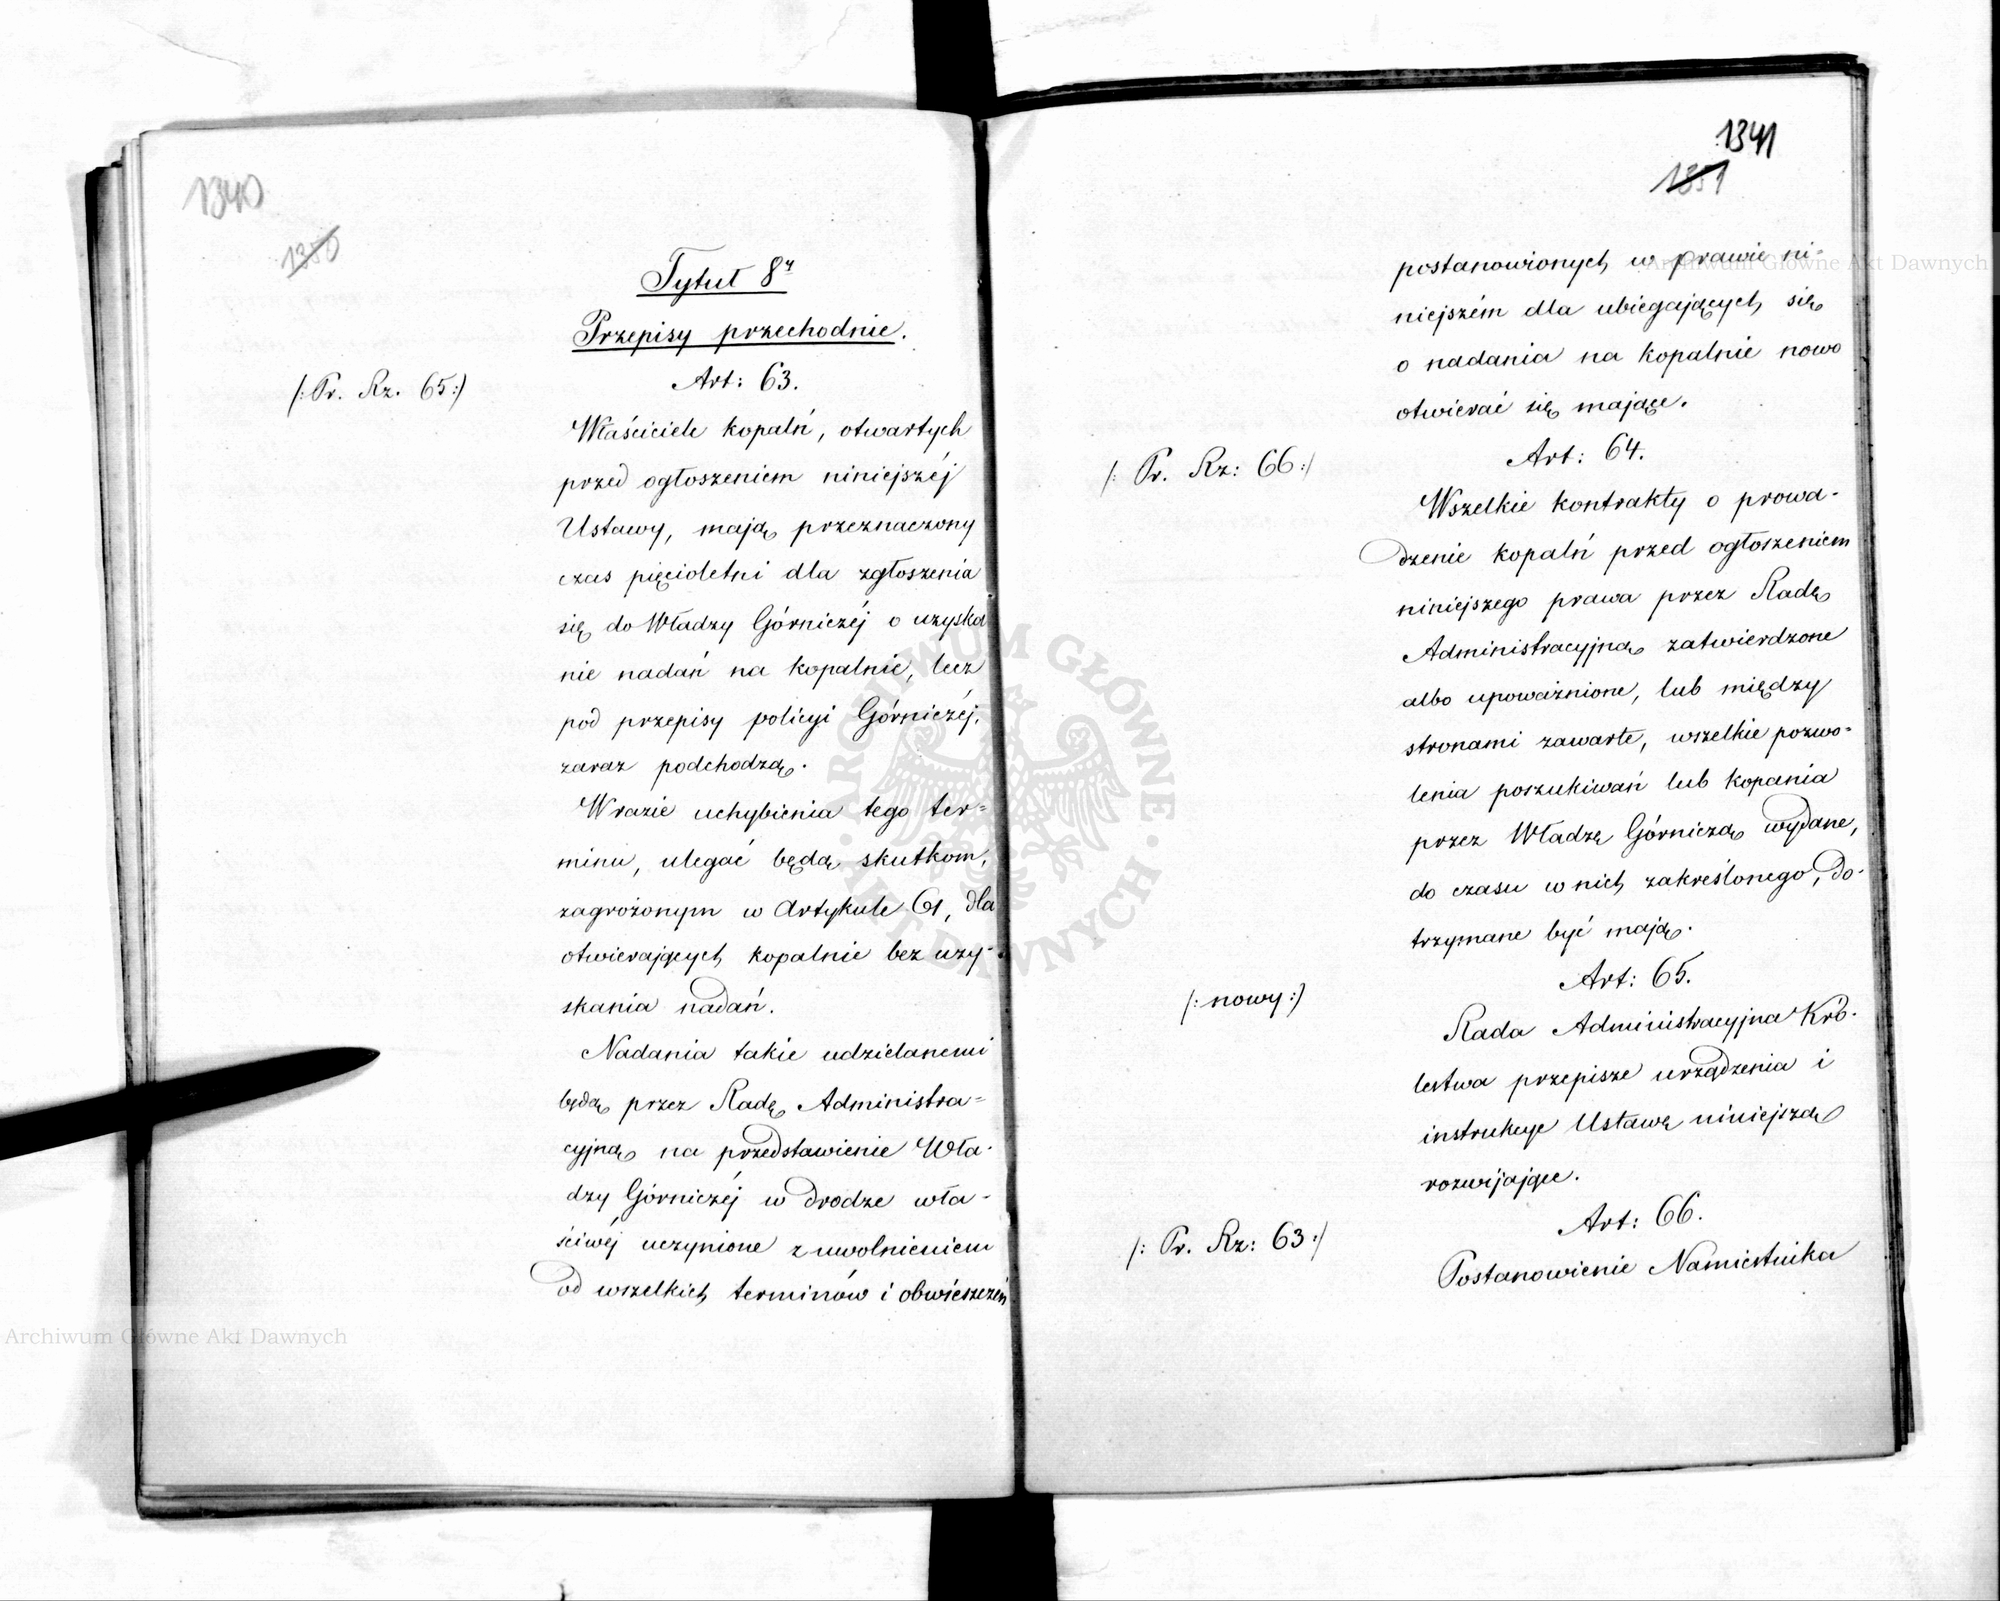 1340
1350
Tytuł 8y
Przepisy przechodnie.
(: Pr. Rz. 65 :)
Art: 63.
Właściciele kopalń, otwartych
przed ogłoszeniem niniejszéj
Ustawy, mają przeznaczony
czas pięcioletni dla zgłoszenia
się do Władzy Górniczéj o uzyska
nie nadań na kopalnie, lecz
pod przepisy policyi Górniczéj,
zaraz podchodzą.
W razie uchybienia tego ter=
minu, ulegać będą skutkom,
zagrożonym w Artykule 61, dla
otwierających kopalnie bez uzy-
skania nadań.
Nadania takie udzielanemi
będą przez Radę Administra=
cyjną na przedstawienie Wła-
dzy Górniczéj w drodze wła-
ściwéj uczynione z uwolnieniem
od wszelkich terminów i obwieszczeń
1341
1351
postanowionych w prawie ni=
niejszém dla ubiegających się
o nadania na kopalnie nowo
otwierać się mające.
(: Pr. Rz: 66 :)
Art: 64.
Wszelkie kontrakty o prowa-
dzenie kopalń przed ogłoszeniem
niniejszego prawa przez Radę
Administracyjną zatwierdzone
albo upoważnione, lub między
stronami zawarte, wszelkie pozwo=
lenia poszukiwań lub kopania
przez Władzę Górniczą wydane,
do czasu w nich zakreślonego, do-
trzymane być mają.
Art: 65.
(: nowy :)
Rada Administracyjna Kró-
lestwa przepisze urządzenia i
instrukcye Ustawę niniejszą
rozwijające.
Art: 66.
(: Pr. Rz: 63 :)
Postanowienie Namiestnika
ARCHIWUM GŁÓWNE AKT DAWNYCH
Archiwum Główne Akt Dawnych
Archiwum Główne Akt Dawnych